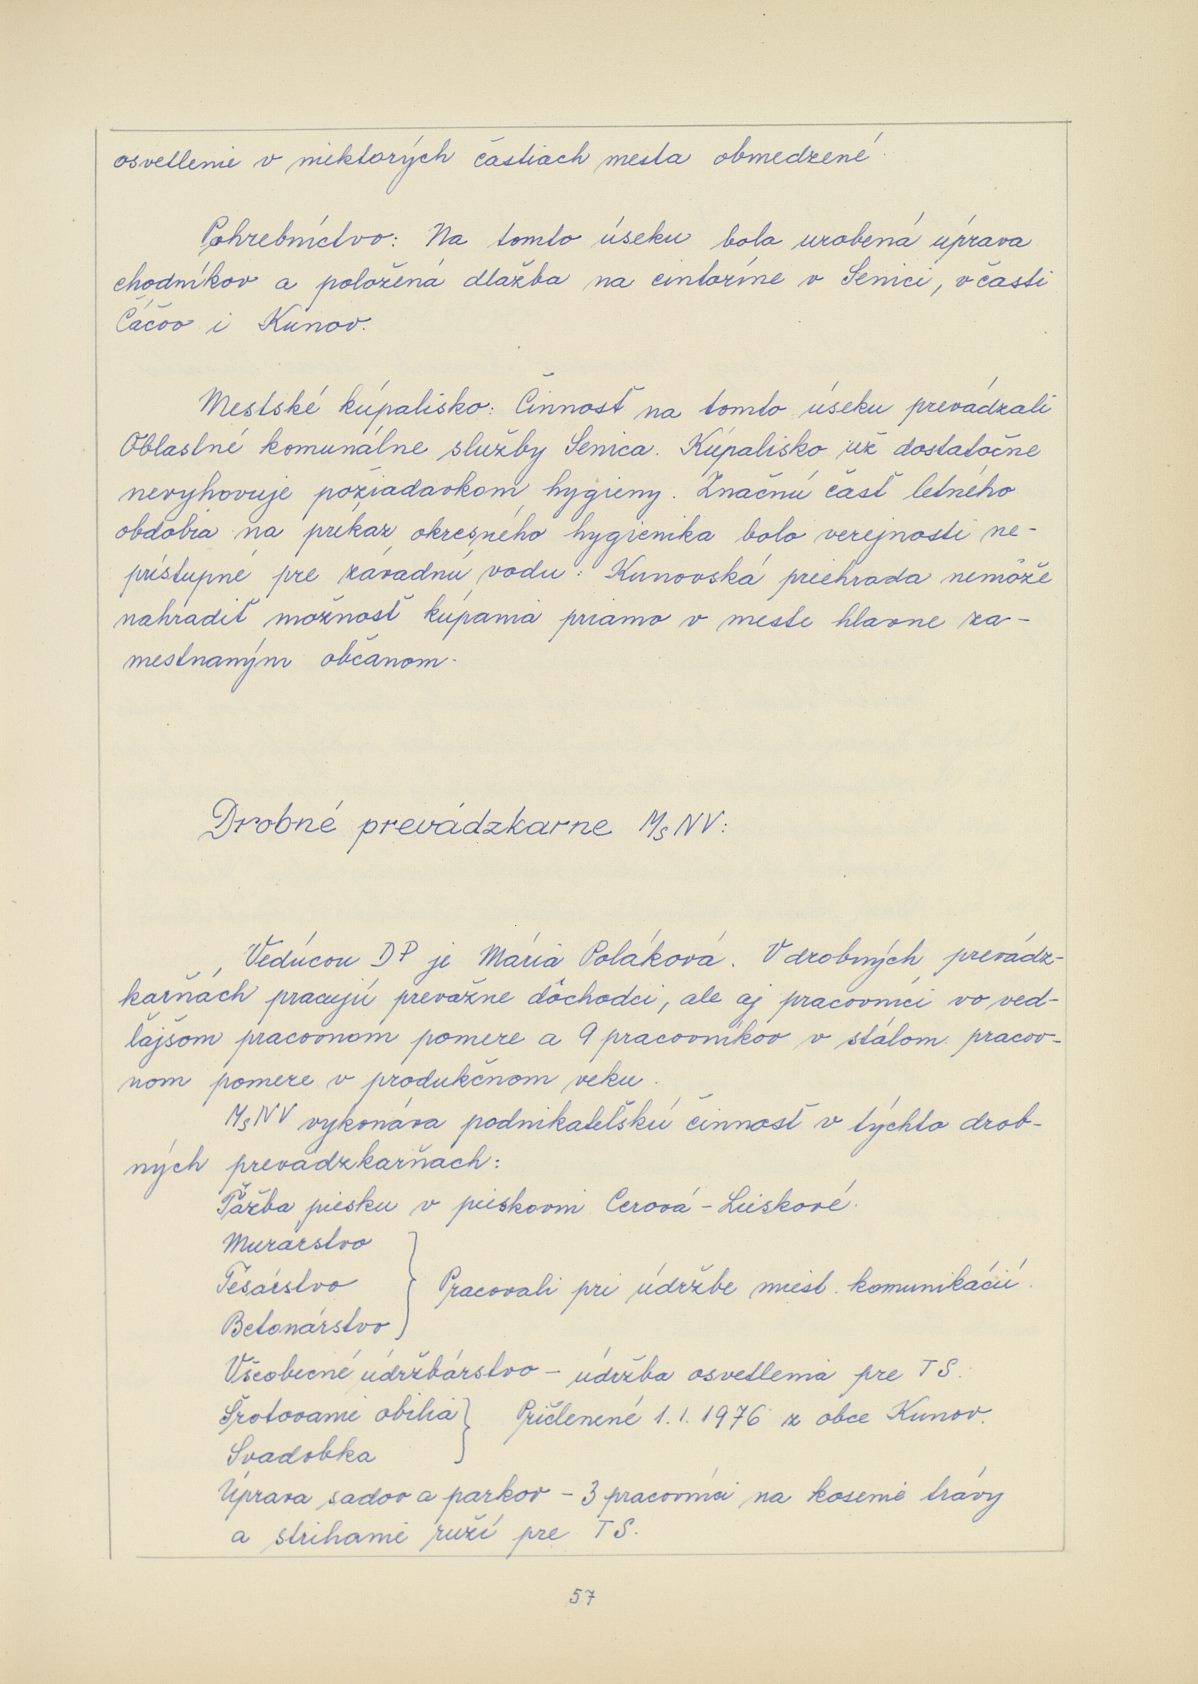 osvetlenie v niektorých častiach mesta obmedzené.
Pohrebníctvo: Na tomto úseku bola urobená úprava
chodníkov a položená dlažba na cintoríne v Senici, v časti
Čáčov i Kunov.
Mestské kúpalisko: Činnosť na tomto úseku prevádzali
Oblastné komunálne služby Senica. Kúpalisko už dostatočne
nevyhovuje požiadavkom hygieny. Značnú časť letného
obdobia na príkaz okresného hygienika bolo verejnosti ne-
prístupné pre závadnú vodu. Kunovská priehrada nemôže
nahradiť možnosť kúpania priamo v meste hlavne za-
mestnaným občanom.
Drobné prevádzkarne MsNV:
Vedúcou DP je Mária Poláková. V drobných prevádz-
karňách pracujú prevažne dôchodci, ale aj pracovníci vo ved-
ľajšom pracovnom pomere a 9 pracovníkov v stálom pracov-
nom pomere v produkčnom veku.
MsNV vykonáva podnikateľskú činnosť v týchto drob-
ných prevádzkarňach:
Ťažba piesku v pieskovni Cerová - Lieskové.
Murárstvo
Tesárstvo } Pracovali pri údržbe miest. komunikácií.
Betonárstvo
Všeobecné údržbárstvo - údržba osvetlenia pre TS.
Šrotovanie obilia } Pričlenené 1. 1. 1976 z obce Kunov.
Svadobka
Úprava sadov a parkov - 3 pracovníci na kosenie trávy
a strihanie ruží pre TS.
57